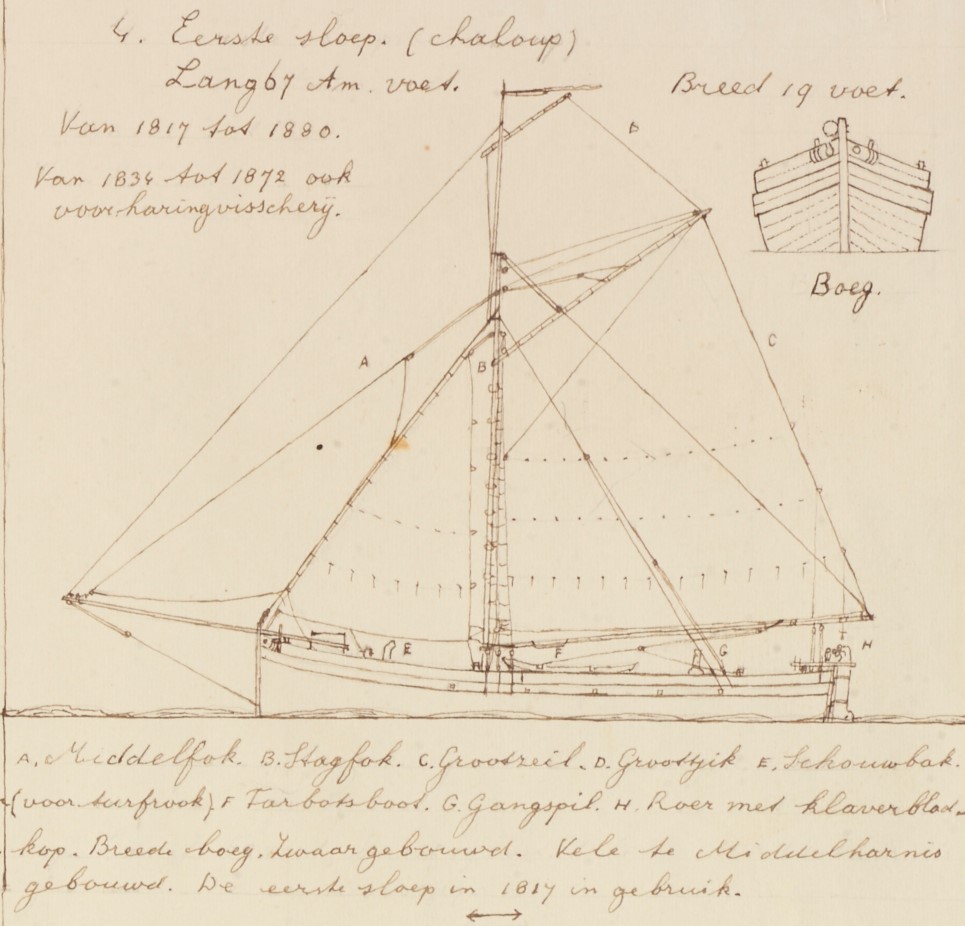 4. Eerste sloep. (chaloup)
Lang 67 Am. voet.
Breed 19 voet.
Van 1817 tot 1880.
Van 1834 tot 1872 ook
voor haringvisscherij.
D
Boeg.
C
A
B
E
F
G
H
A. Middelfok. B. Stagfok. C. Grootzeil. D. Grootgik E. Schouwbak.
(voor turfrook) F Tarbotsboot. G. Gangspil. H. Roer met klaverblad-
kop. Breede boeg. Zwaar gebouwd. Vele te Middelharnis
gebouwd. De eerste sloep in 1817 in gebruik.